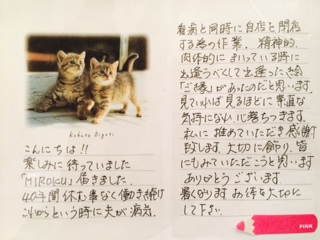 Kokoro Biyori
こんにちは!!
楽しみに待っていました
「MIROKU」届きました。
40年間休む事なく働き続け
これからという時に夫が病気、
看病と同時に自店を閉店
する為の作業、精神的、
肉体的にまいっている時に
出逢うべくして出逢った絵
「ご縁」があったのだと思います。
見ていれば見るほどに素直な
気持になれ心落ちつきます。
私に推めていただき感謝
致します。大切に飾り、皆
にもみていただこうと思います
ありがとうございます
暑くなります お体を大切に
して下さい。
PINK